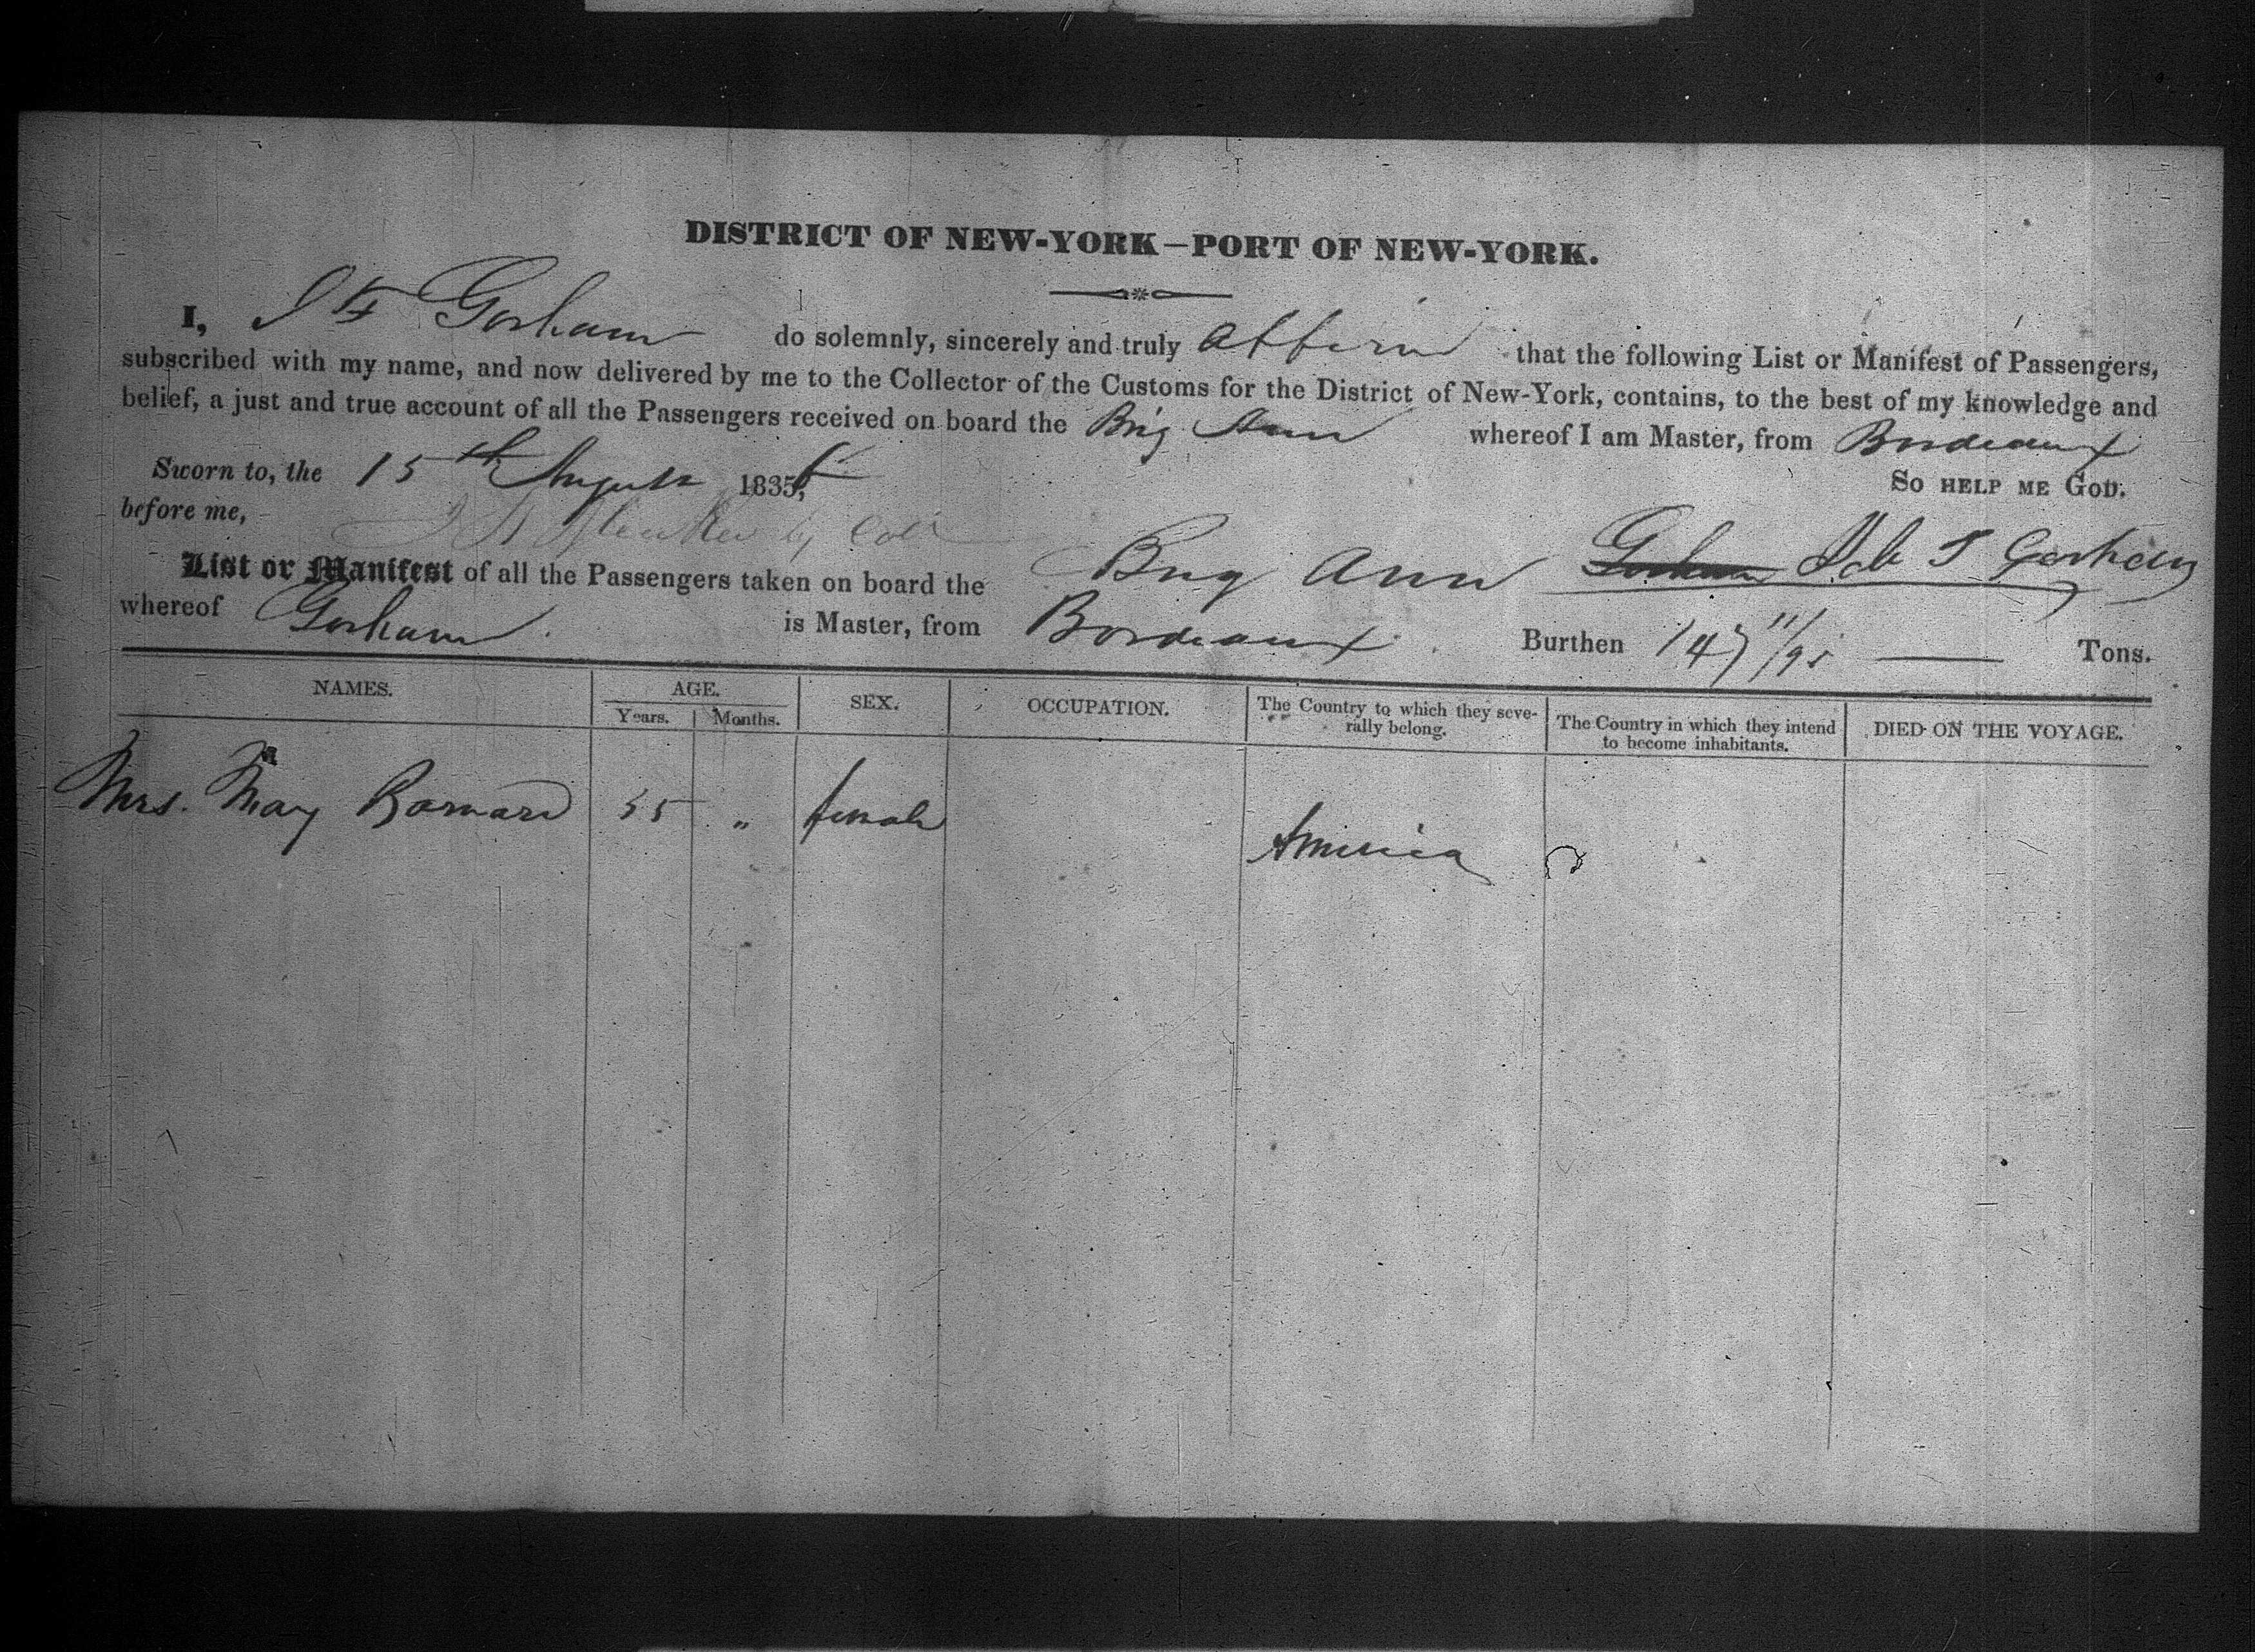 DISTRICT OF NEW-YORK—PORT OF NEW-YORK.
I, Gorham do solemnly, sincerely and truly affirm that the following List or Manifest of Passengers,
subscribed with my name, and now delivered by me to the Collector of the Customs for the District of New-York, contains, to the best of my knowledge and
belief, a just and true account of all the Passengers received on board the Brig Ann whereof I am Master, from Bordeaux
Sworn to, the 15th August 1835, So HELP ME GOD.
before me,
List or Manifest of all the Passengers taken on board the Brig Ann Gorham
whereof Gorham is Master, from Bordeaux. Burthen 147 11/95 Tons.
NAMES. AGE. SEX. OCCUPATION. The Country to which they seve-
rally belong. The Country in which they intend
to become inhabitants. DIED ON THE VOYAGE.
Years. Months.
Mrs. May Barnard 55 " female America